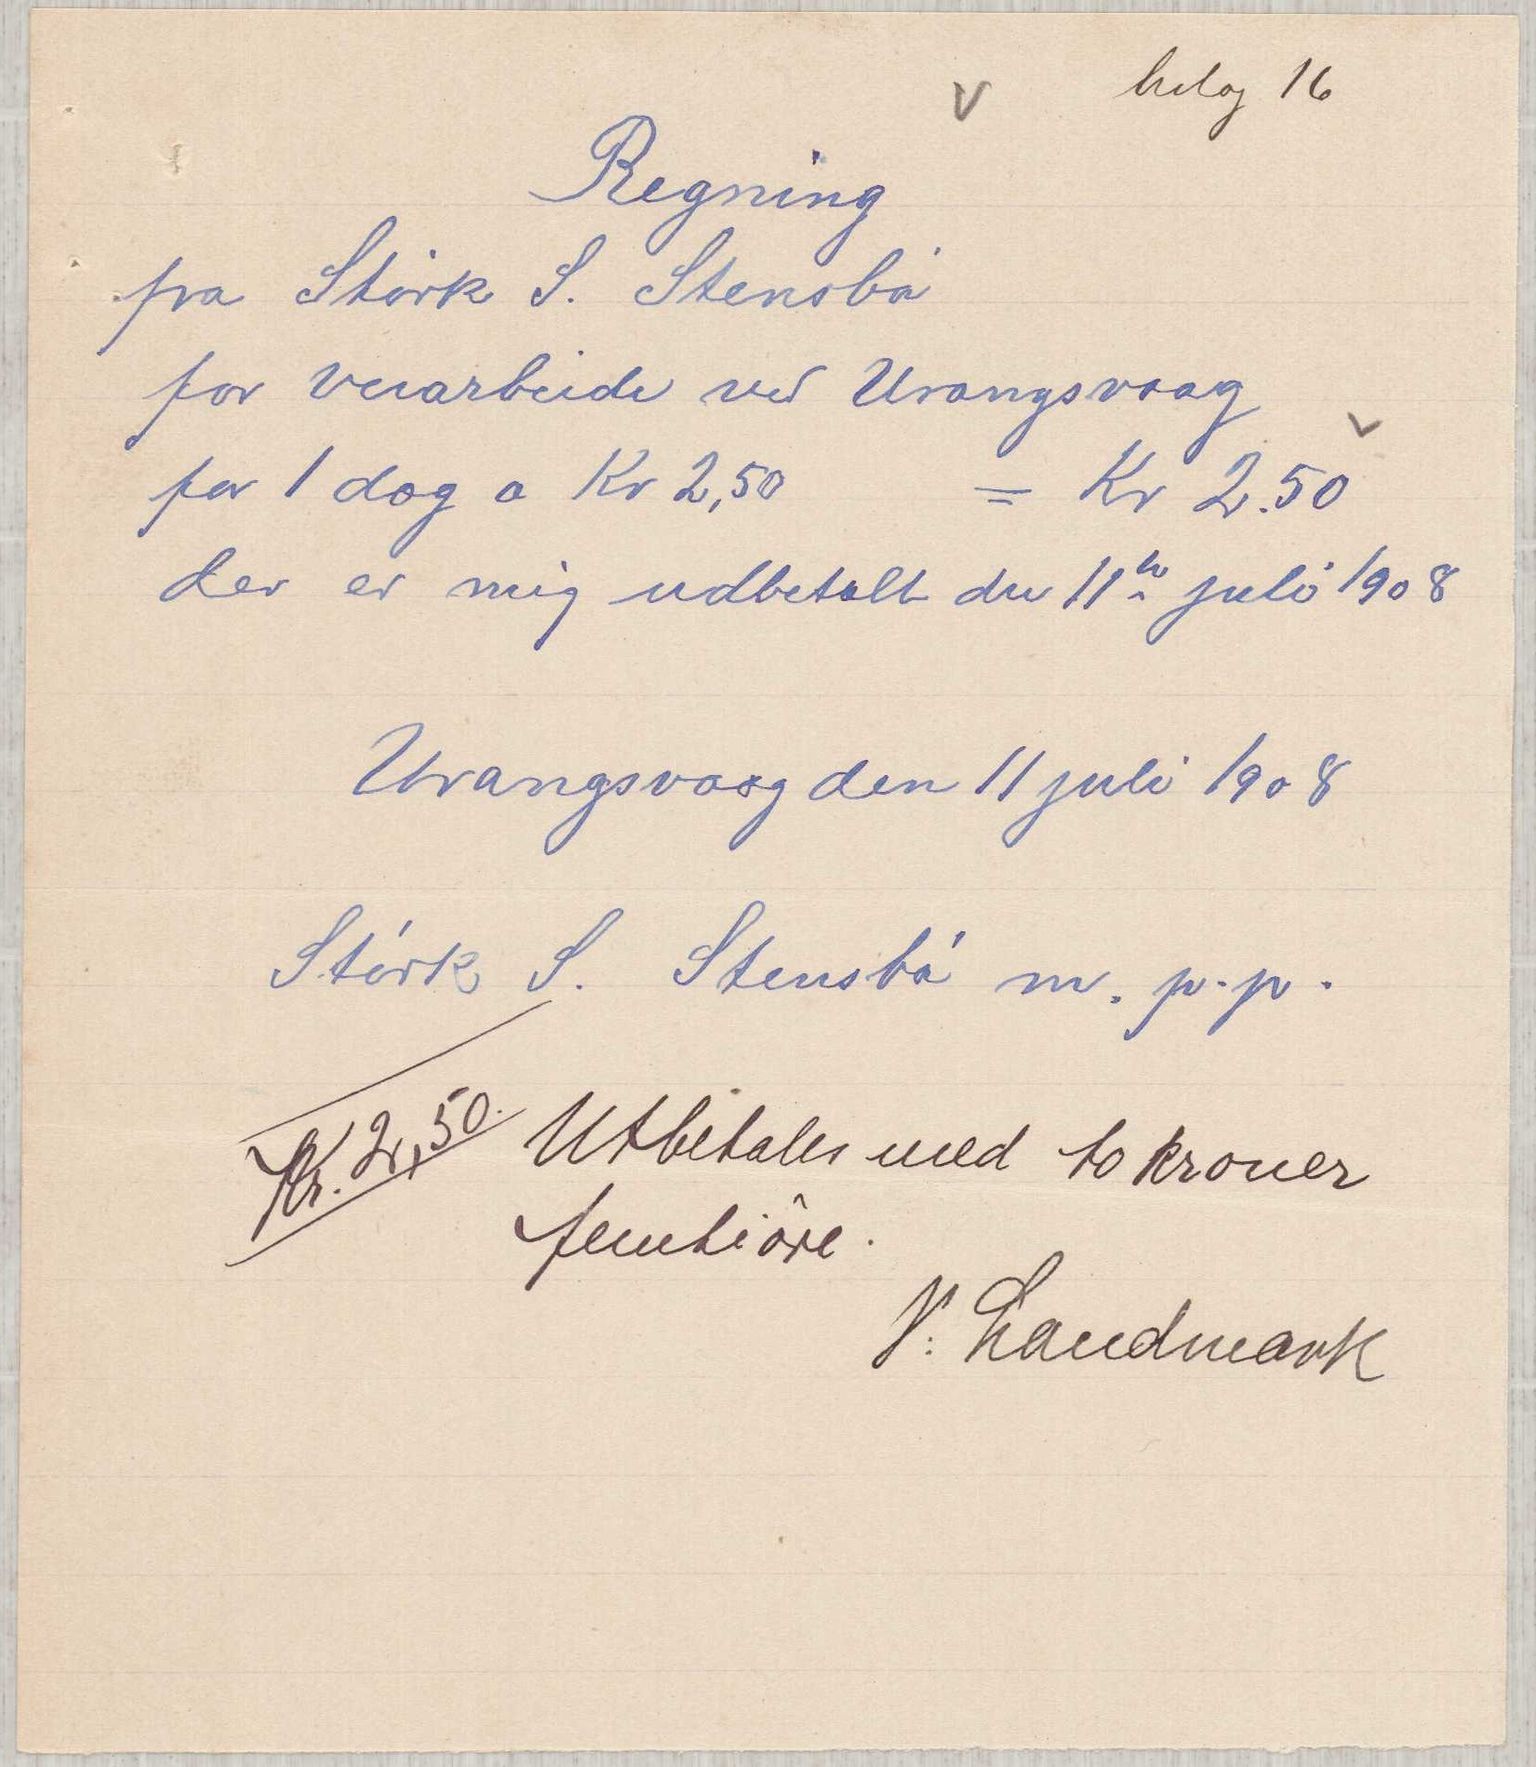 bilag 16
Regning
fra Störk S. Stensbö
for veiarbeide ved Urangsvaag
for 1 dag a Kr 2,50 = Kr 2.50
der er mig udbetalt den 11te juli 1908
Urangsvaag den 11 juli 1908
Störk S. Stensbö m. p. p.
Kr. 2,50. Utbetales med to kroner
femti öre.
N. Landmark